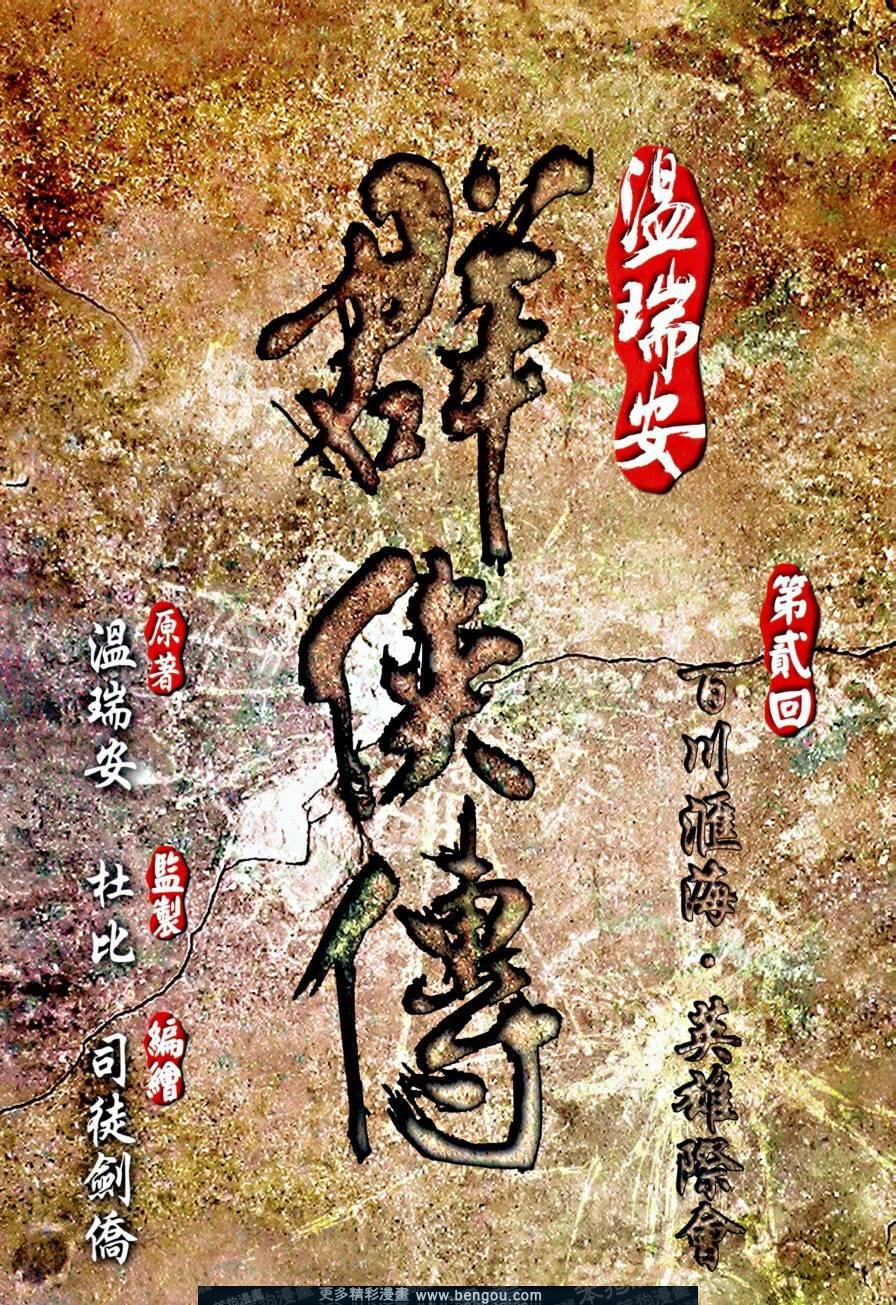 溫瑞安
群俠傳
第貳回
百川滙海·英雄際會
原著
溫瑞安
監製
杜比
編繪
司徒劍僑
更多精彩漫畫 www.bengou.com